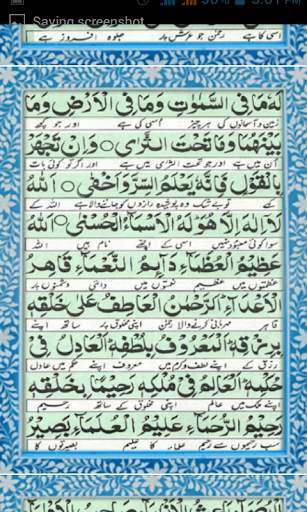 Saving screenshot...
3:01 PM
اسی کا ہے رحمٰن جو عرش پر جلوہ افروز ہے
لَهٗ مَا فِی السَّمٰوٰتِ وَمَا فِی الْاَرْضِ وَمَا
زمین و آسمانوں کی ہر چیز اسی کی ہے اور جو کچھ
بَیْنَهُمَا وَمَا تَحْتَ الثَّرٰی ○ وَاِنْ تَجْهَرْ
ان میں ہے اور جو تحت الثریٰ میں ہے اور اگر کوئی بات
بِالْقَوْلِ فَاِنَّهٗ یَعْلَمُ السِّرَّ وَاَخْفٰی ○ اَللّٰهُ
کہے تو بے شک وہ پوشیدہ رازوں کو جاننے والا ہے اللہ کے
لَاۤ اِلٰهَ اِلَّا هُوَ لَهُ الْاَسْمَآءُ الْحُسْنٰی ○ اَللّٰهُ
سوا کوئی معبود نہیں اسی کے اچھے نام ہیں اللہ
عَظِیْمُ الْعُظَمَآءِ دَآئِمُ النَّعْمَآءِ قَاهِرُ
عظمتوں میں عظیم نعمتوں میں دائمی دشمنوں پر
الْاَعْدَآءِ الرَّحْمٰنُ الْعَاطِفُ عَلٰی خَلْقِهٖ
قاہر مہربانی کرنے والا رحمٰن اپنی مخلوق پر ساتھ اپنے
بِرِزْقِهٖ الْمَعْرُوْفُ بِلُطْفِهٖ الْعَادِلُ فِیْ
رزق کے اپنے لطف و کرم میں معروف اپنے حکم میں عادل
حُكْمِهٖ الْعَالِمُ فِیْ مُلْكِهٖ رَحِیْمًا بِخَلْقِهٖ
اپنے ملک میں عالم اپنی مخلوق کے ساتھ رحیم
رَحِیْمُ الرُّحَمَآءِ عَلِیْمُ الْعُلَمَآءِ بَصِیْرُ
سب رحیموں سے رحیم علماء کا علیم بصیرتوں کا